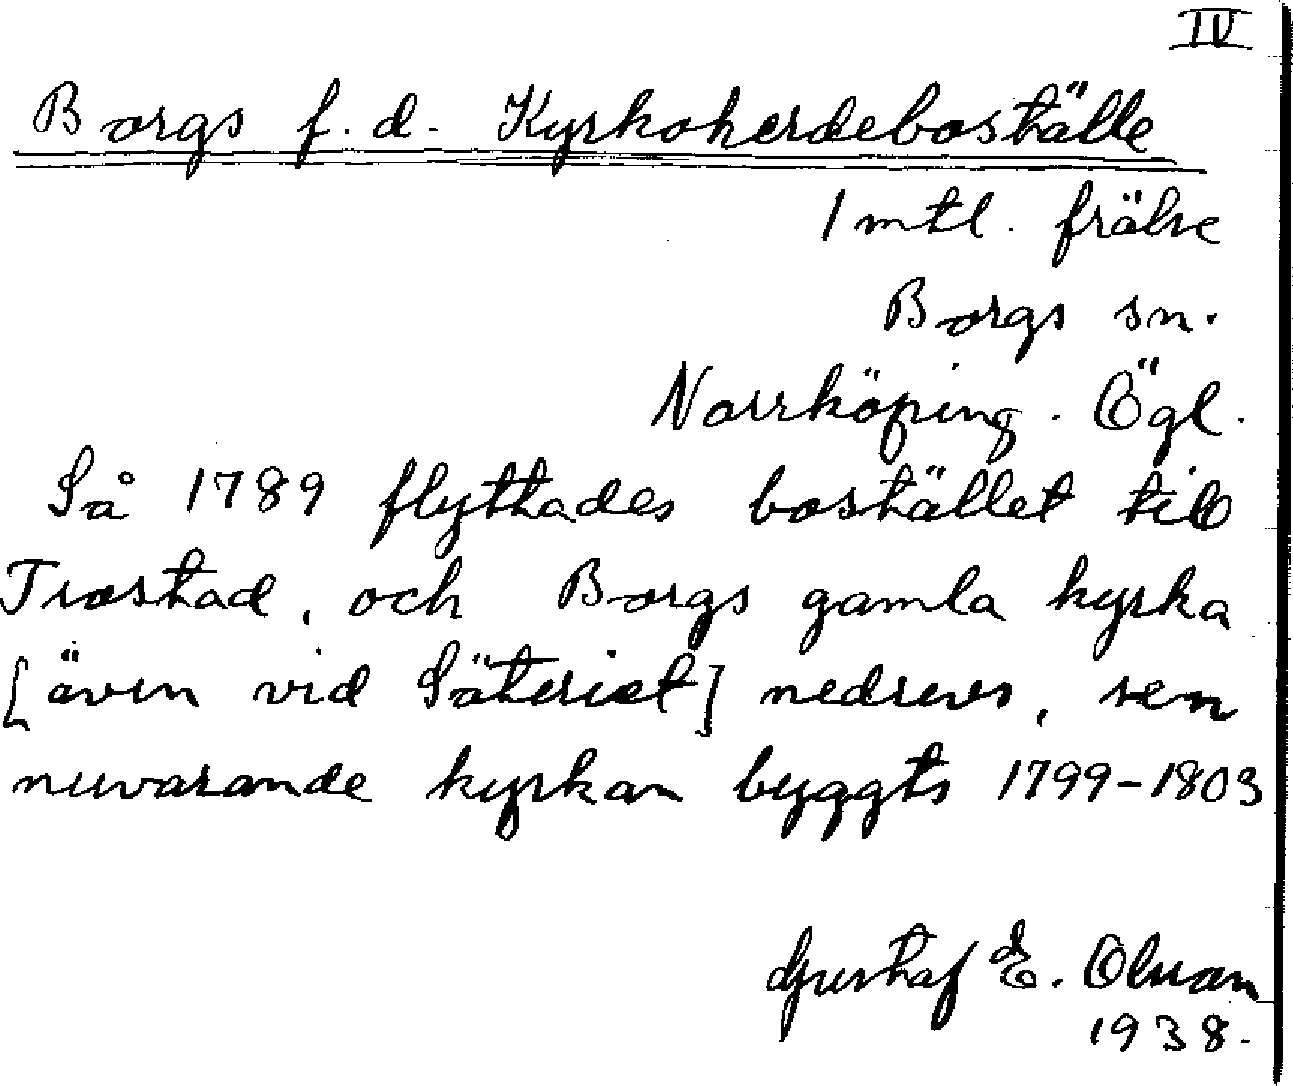 IV
Borgs f.d. Kyrkoherdeboställe
1 mtl. frälse
Borgs sn.
Norrköping. Ögl.
Så 1789 flyttades bostället till
Trostad, och Borgs gamla kyrka
[även vid Säteriet] nedrevs, sen
nuvarande kyrkan byggts 1799-1803
Gustaf E. Olsson
1938.